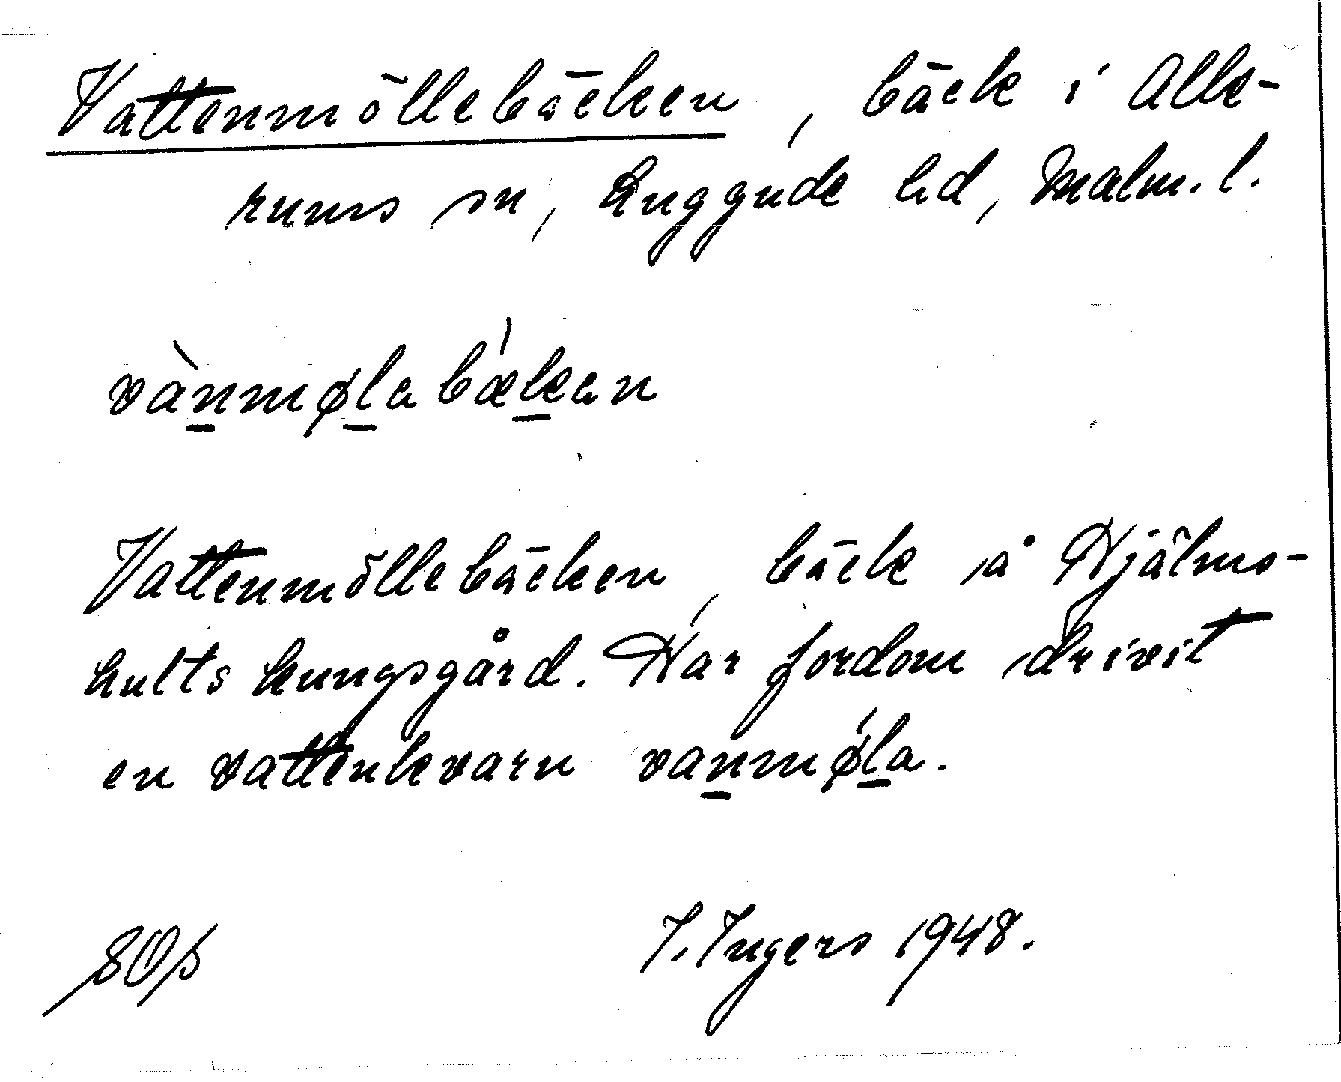 Vattenmöllebäcken, bäck i Alle-
rums sn, Luggude hd, Malm. l.
vànmøla bǽkan
Vattenmöllebäcken, bäck å Hjälms-
hults kungsgård. Har fordom drivit
en vattenkvarn vanmǿla.
I. Ingers 1948.